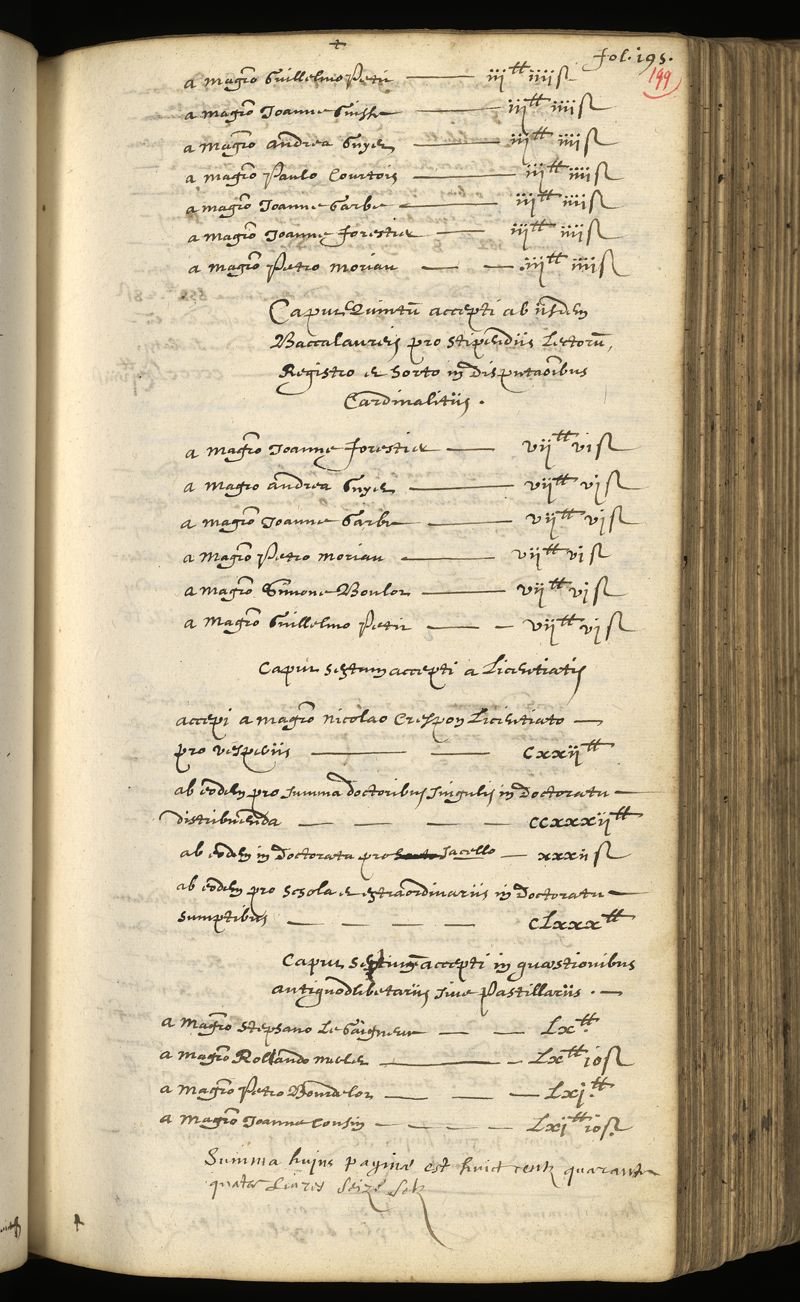 fol. 195.
199
a magrō Guillelmo Petit — iii^tt iiii s
a magrō Joanne Guisse — iii^tt iiii s
a magrō andrea Guyer — iii^tt iiii s
a magrō Paulo Courtois — iii^tt iiii s
a magrō Joanne Garbe — iii^tt iiii s
a magrō Joanne forestier — iii^tt iiii s
a magrō Petro morian — — iii^tt iiii s
Caput Quintū accepti ab iisdem
Baccalaureis pro stipendiis Lectorū,
Registro et Sorto in Disputaōibus
Cardinalitiis.
a magrō Joanne forestier — vii^tt vi s
a magro andrea Guyer — vii^tt vi s
a magrō Joanne Garbe — vii^tt vi s
a magrō Petro morian — vii^tt vi s
a magrō Simone Boulot — vii^tt vi s
a magrō Guillelmo Petit — — vii^tt vi s
Caput sextum accepti a Licentiatis
accepi a magrō nicolao Crespon Licentiato —
pro vesperiis — — cxxii^tt
ab eodem pro summa doctoribus singulis in Doctoratu —
distribuenda — — — — ccxxxii^tt
ab eodem in Doctoratu pro Jacello — xxxii s
ab eodem pro schola et extraordinariis in Doctoratu —
sumptibus — — — — cLxxx^tt
Caput septimū accepti in quæstionibus
antiquodlibetariis sive Pastillariis. —
a magrō stephano Le Gaigneur — — Lx^tt.
a magrō Rollando meler — — Lx^tt 10 s
a magrō Petro Bourdelot — — — Lxi.^tt
a magrō Joanne Cousin — — — — Lxi^tt 10 s.
Summa huius paginæ est huict centz quarante
quatre Livres seize solz